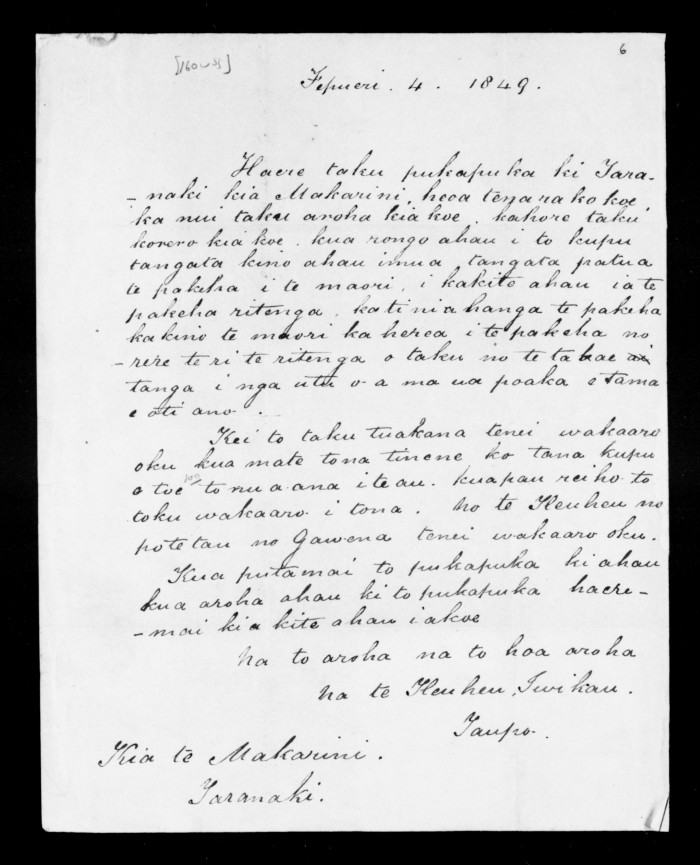 6
Fepueri . 4 . 1849 .
Haere taku pukapuka ki Tara-
- naki kia Makarini, heoa tena ra ko koe
ka nui taku aroha kia koe . kahore taku
korero kia koe . kua rongo ahau i to kupu
tangata kino ahau imua , tangata patua
te pakeha i te maori , i kakite ahau i a te
pakeha ritenga , kati nia hanga te pakeha
kakino te maori ka herea i te pakeha no
- rere te ri te ritenga o taku no te tahae
tanga i nga utu o a ma ua poaka e tama
e oti ano .
Kei to taku tuakana tenei wakaaro
oku kua mate tona tinene ko tana kupu
o toe to nu a ana i te au . kuapau rei ho to
toku wakaaro i tona . No te Heuheu no
potetau no Gawena tenei wakaaro oku .
Kua putamai to pukapuka ki ahau
kua aroha ahau ki to pukapuka haere -
- mai kia kite ahau iakoe
Na to aroha na to hoa aroha
Na te Heuheu , Iwikau .
Taupo .
Kia te Makarini .
Taranaki .